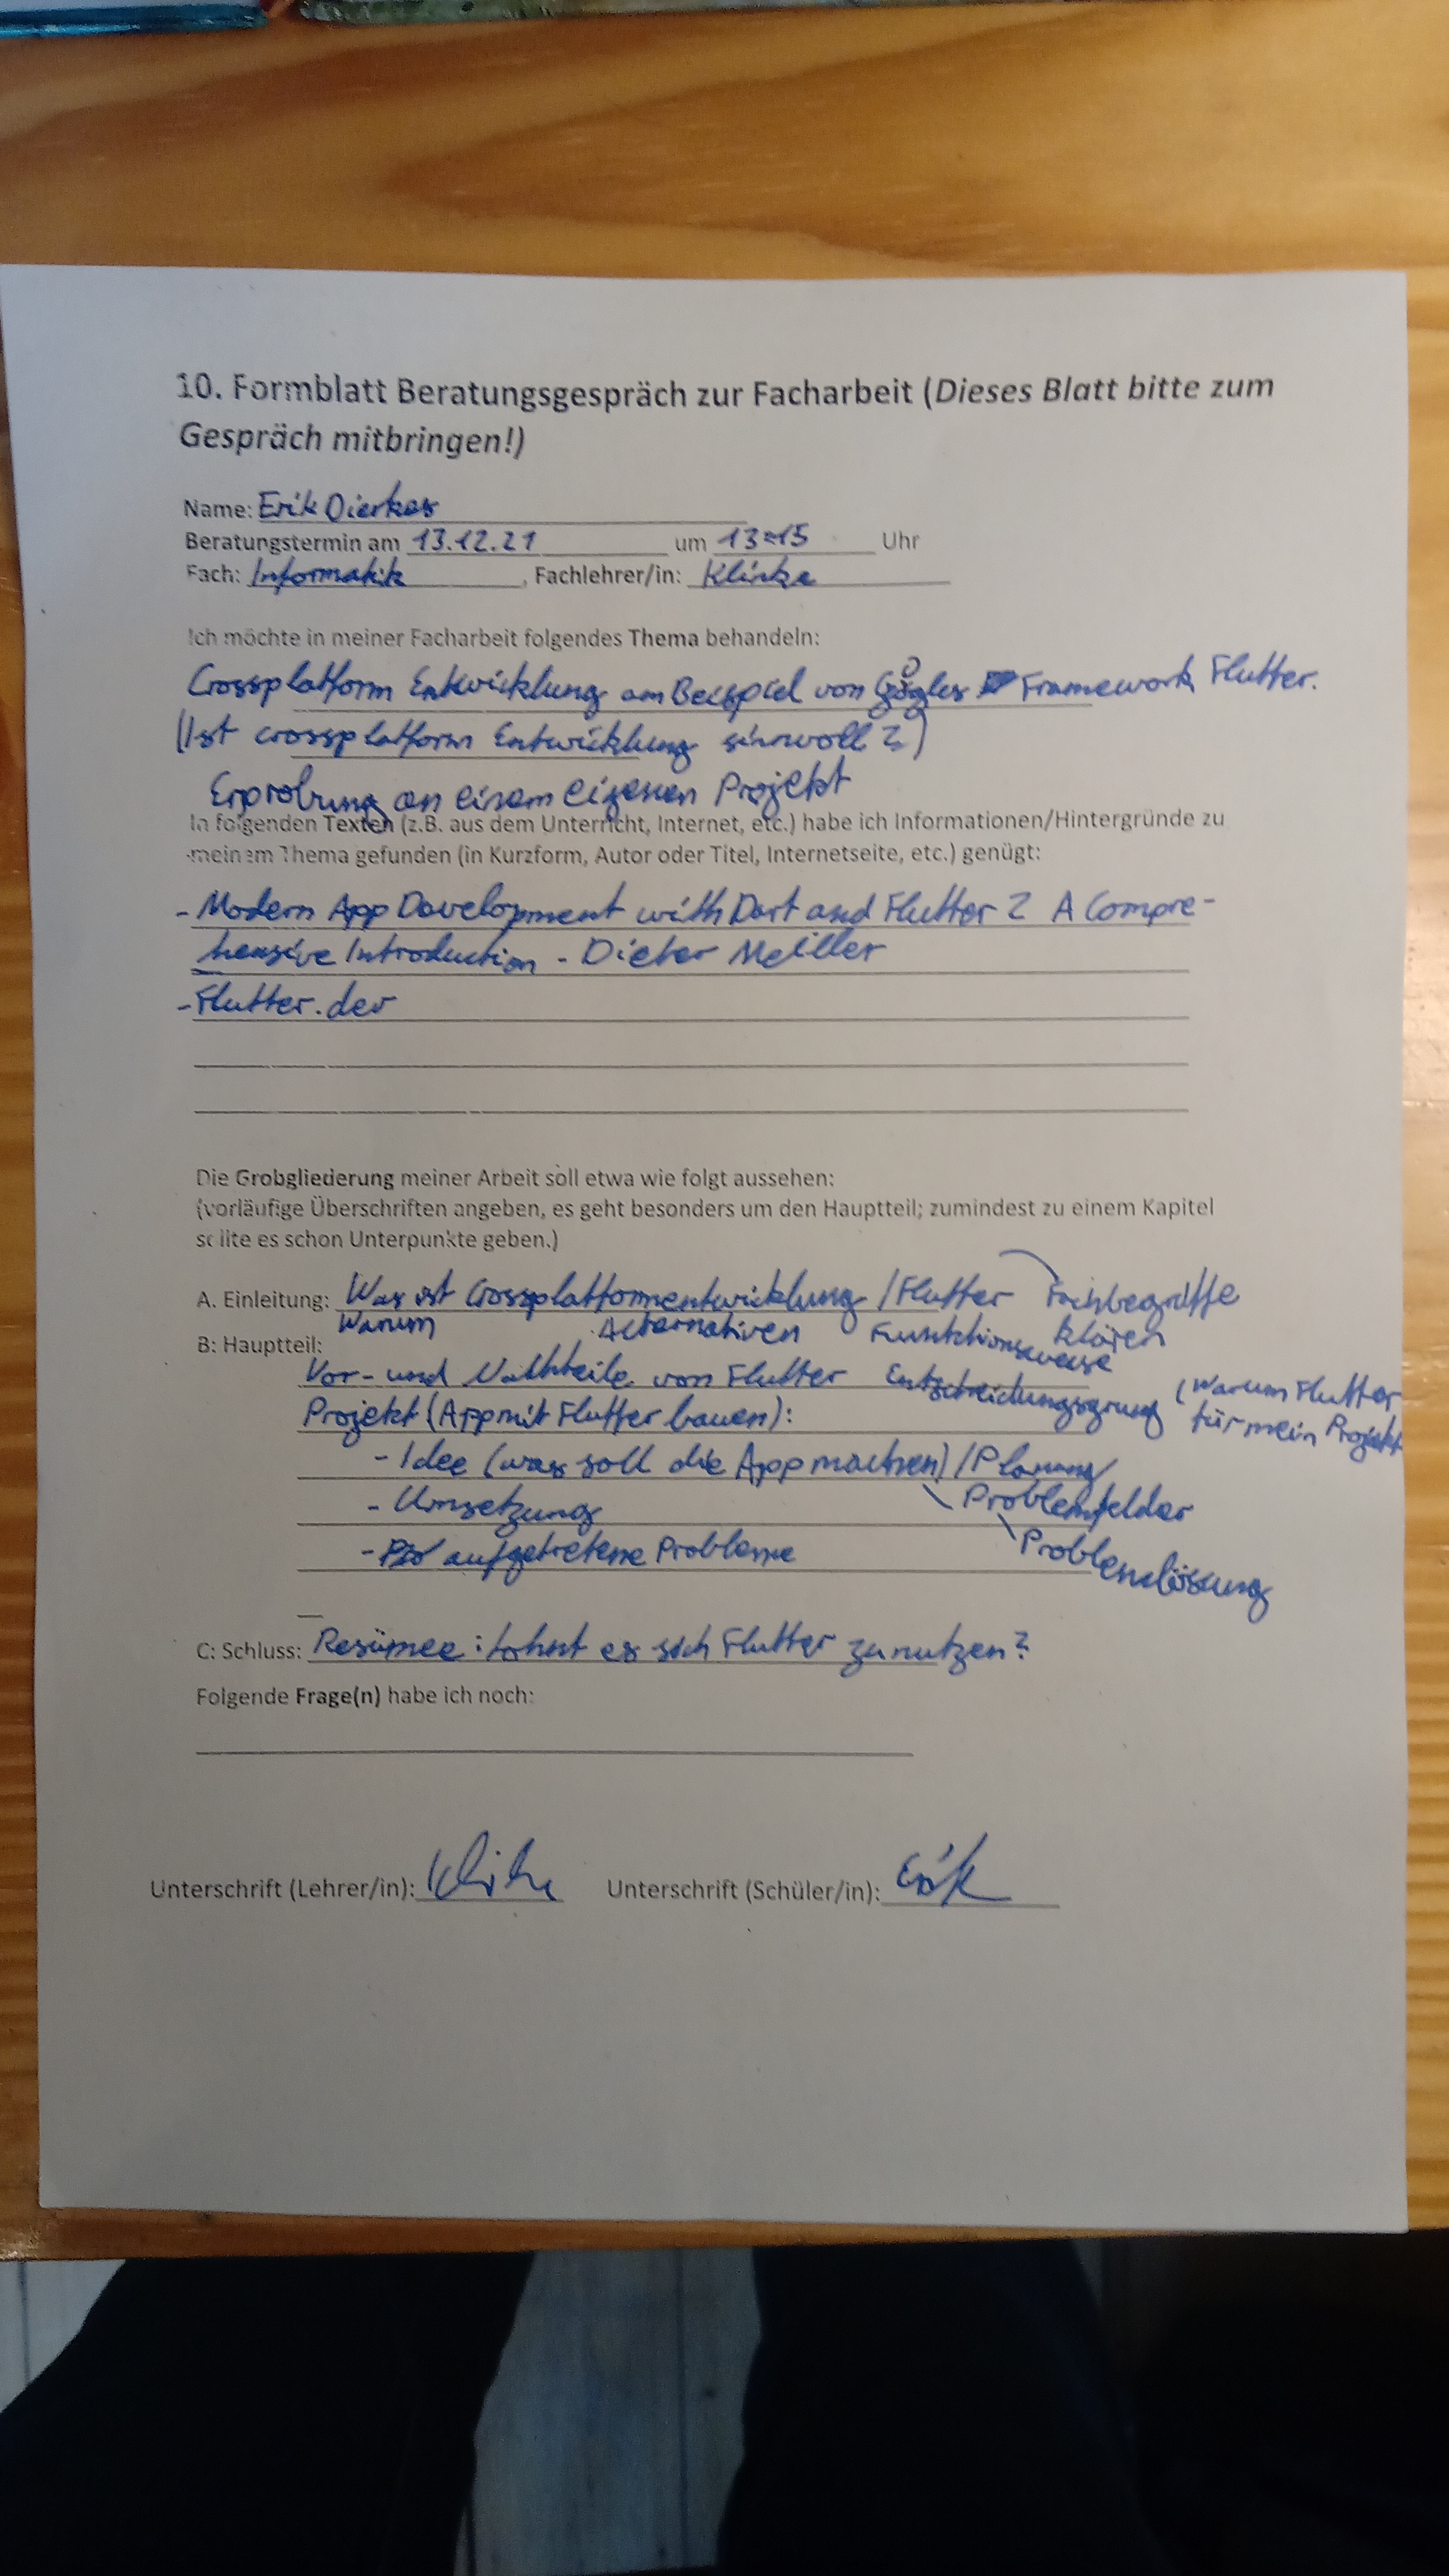 10. Formblatt Beratungsgespräch zur Facharbeit (Dieses Blatt bitte zum
Gespräch mitbringen!)
Name: Erik Dierkes
Beratungstermin am 13.12.21 um 13:15 Uhr
Fach: Informatik, Fachlehrer/in: Klinke
Ich möchte in meiner Facharbeit folgendes Thema behandeln:
Crossplatform Entwicklung am Beispiel von Googles Framework Flutter.
(Ist crossplatform Entwicklung sinnvoll?)
Erprobung an einem eigenen Projekt
In folgenden Texten (z.B. aus dem Unterricht, Internet, etc.) habe ich Informationen/Hintergründe zu
meinem Thema gefunden (in Kurzform, Autor oder Titel, Internetseite, etc.) genügt:
- Modern App Development with Dart and Flutter 2 A Compre-
hensive Introduction - Dieter Meiller
- Flutter.dev
Die Grobgliederung meiner Arbeit soll etwa wie folgt aussehen:
(vorläufige Überschriften angeben, es geht besonders um den Hauptteil; zumindest zu einem Kapitel
sollte es schon Unterpunkte geben.)
A. Einleitung: Was ist Crossplattformentwicklung / Flutter Fachbegriffe
Warum Alternativen Funktionsweise klären
B: Hauptteil:
Vor- und Nachteile von Flutter Entscheidungsgrund (Warum Flutter
für mein Projekt
Projekt (App mit Flutter bauen):
- Idee (was soll die App machen) / Planung
- Umsetzung Problemfelder
- aufgetretene Probleme Problemlösung
C: Schluss: Resümee: Lohnt es sich Flutter zu nutzen?
Folgende Frage(n) habe ich noch:
Unterschrift (Lehrer/in): Klinke Unterschrift (Schüler/in): Erik